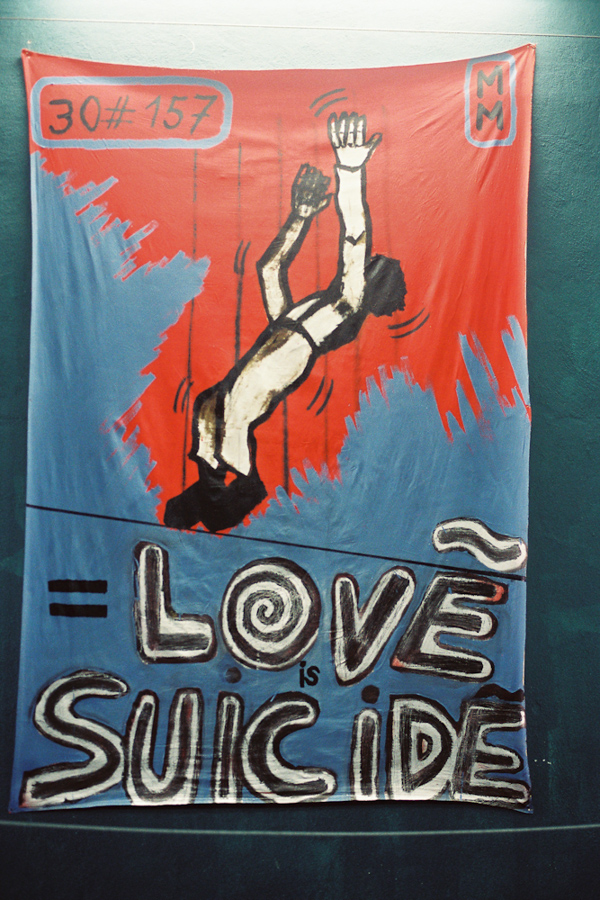 30#157
MM
= LOVẼ
is
SUICIDẼ